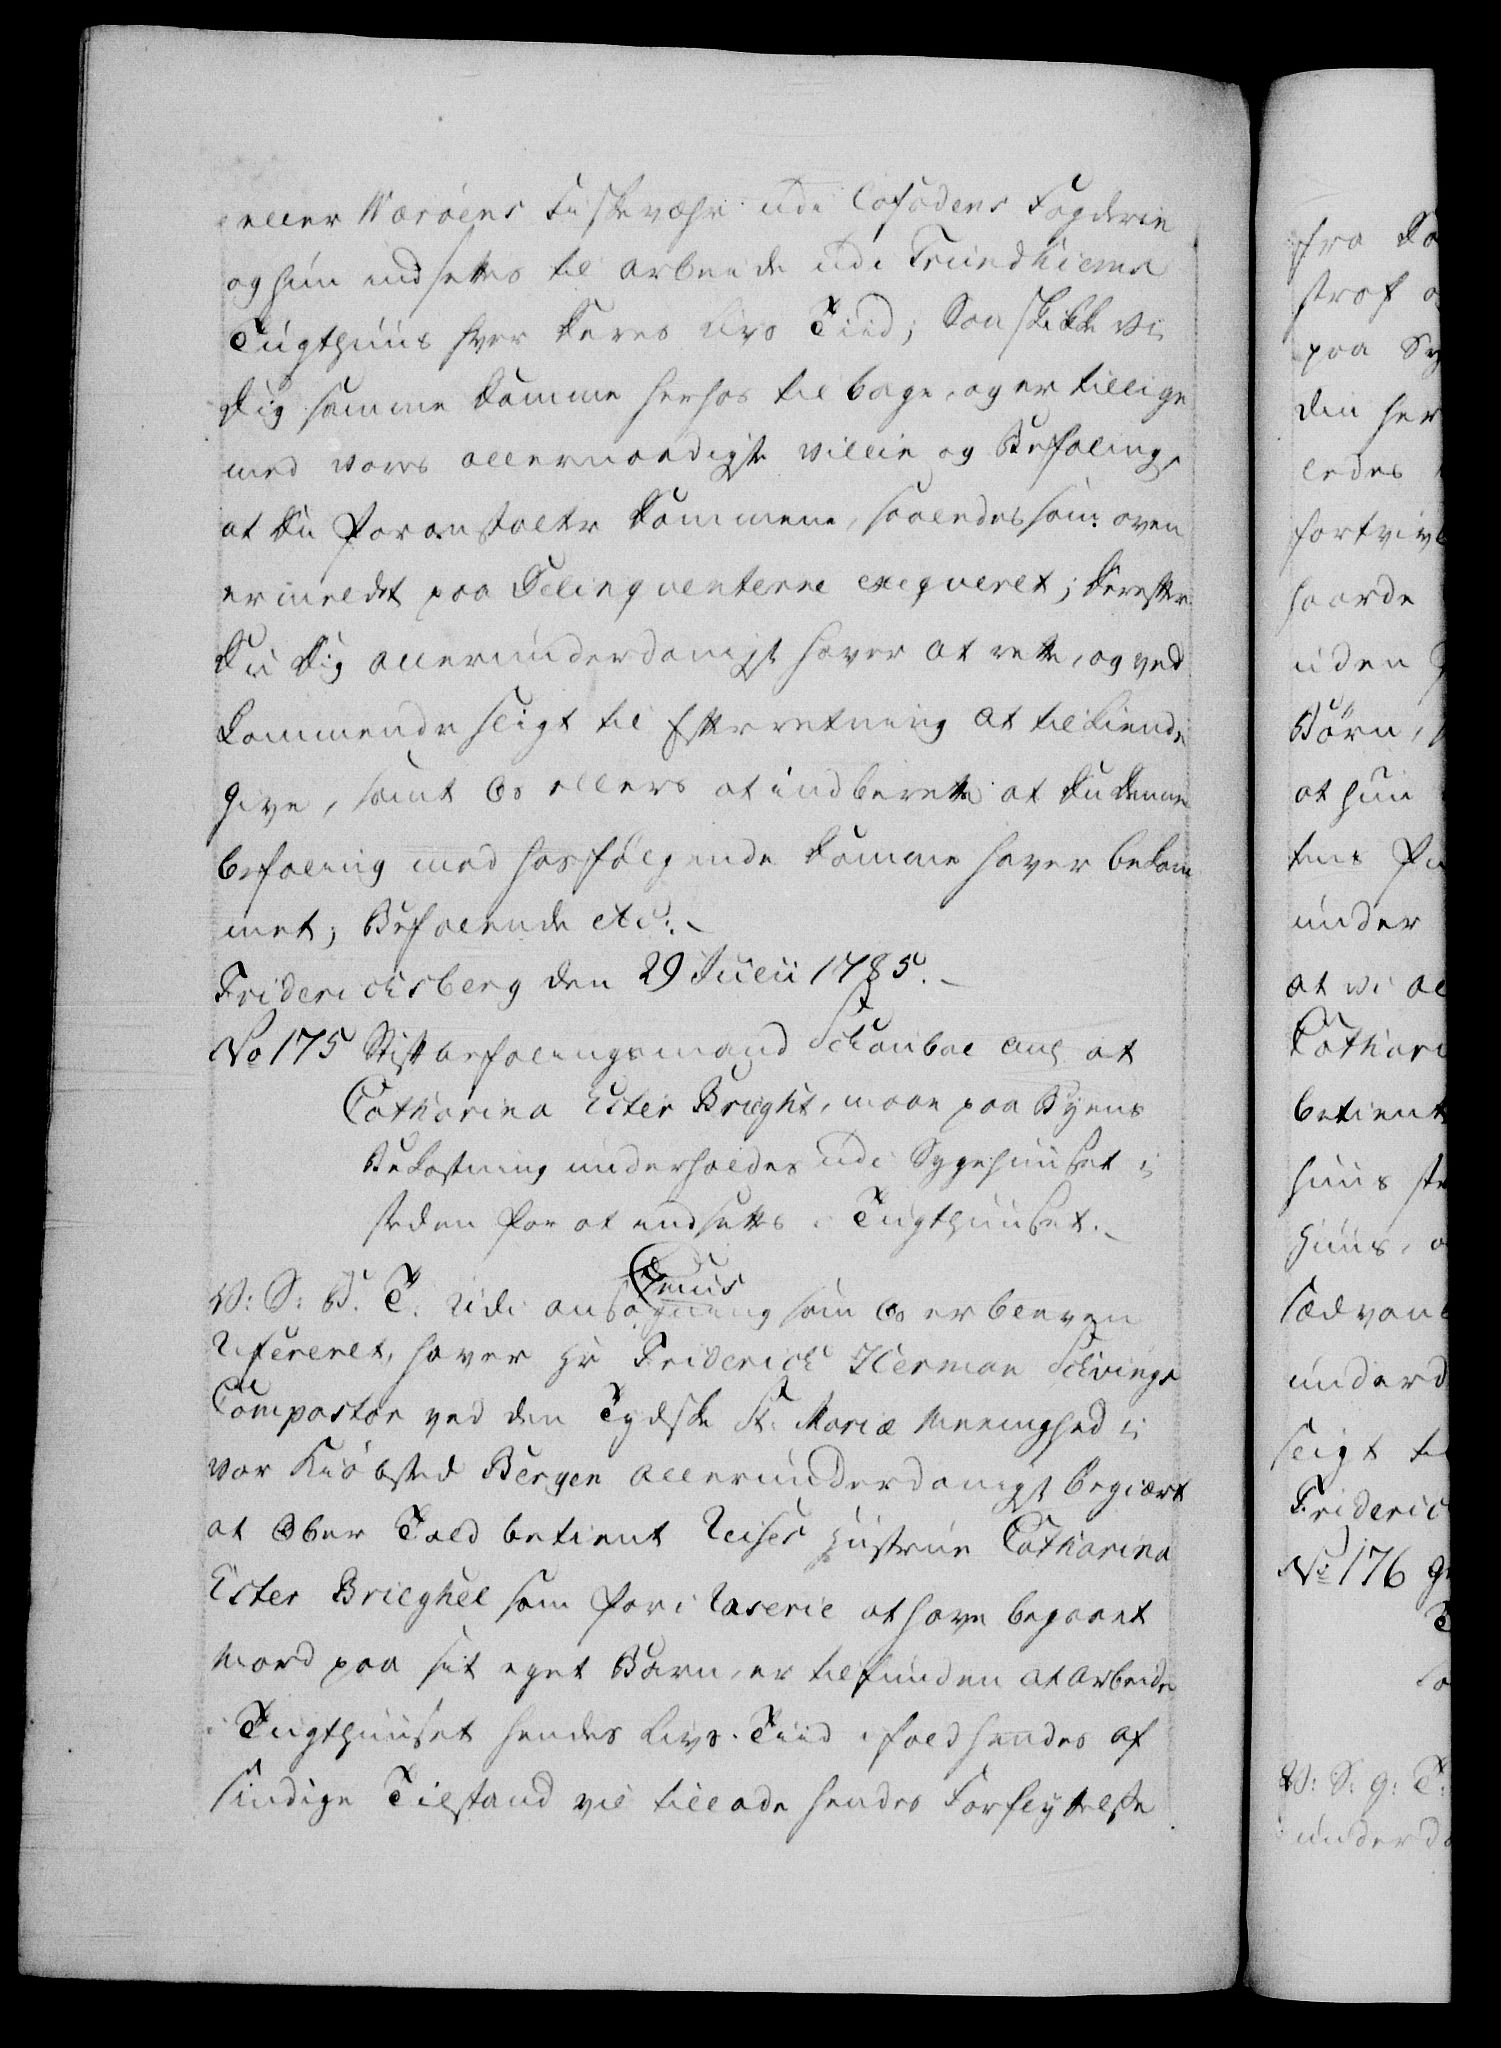 eller Værøens Fiskevæhr udi Lofodens Fogderie
og hun indsettes til arbeide udi Trundhiems
Tugthuus hver deres Livs Tiid; Saa skikke vi
dig samme Domme herhos tilbage, og er tillige
med vores allernaadigste villie og Befaling,
at du foranstalter Dommene, saaledes som oven
ermeldt paa Delinqventerne exeqveret; derefter
du dig allerunderdanigst haver at rette, og ved
kommende sligt til Efterretning at tilkiende
give, samt Os ellers at indberette at du denne
befaling med hosfølgende Domme haver bekom
met; Befalende etc:.
Friderichsberg den 29 Julii 1785.
No 175 Stiftbefalingsmand Schouboe ang at
Catharina Ester Brieghl, maae paa Byens
Bekostning underholdes udi Sygehuuset i
steden for at indsettes i Tugthuuset.
V: S: G. T. Udi ansøgning som Os er bleven
refereret, haver Hr Friderich Herman
Compastor ved den Tydske St. Mariæ Meenighed i
vor Kiøbsted Bergen allerunderdanigst begiært
at Ober Told betient Reises Hustrue Catharina
Ester Brieghel som for i Raserie at have begaaet
Mord paa sit eget Barn, er tilfunden at arbeide
i Tugthuuset hendes Livs-Tiid i fald hendes af
sindige Tilstand vil tillade hendes Forflyttelse
fra
straf
paa
din her
ledes
fortvivl
haarde
uden
Børn,
at hun
tens
under
at vi al
Cathari
betient
huus
Huus,
sædvanl
underd
sligt ti
Frideric
No 176
V: S: G: T:
underda